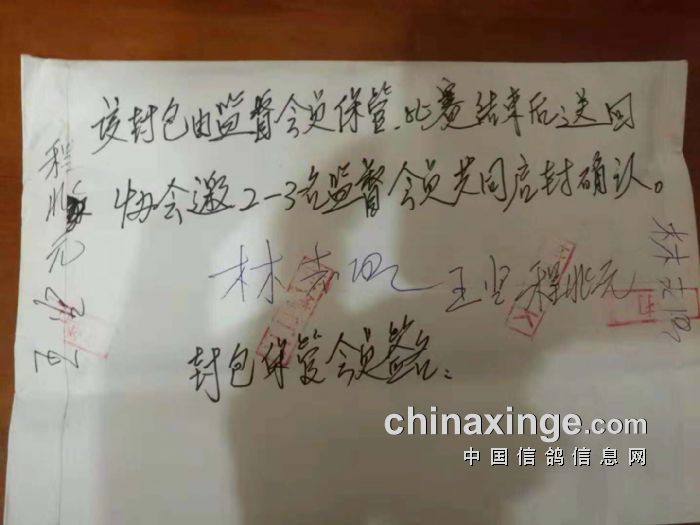 该封包由监督会员保管、比赛结束后送回
协会邀2-3名监督会员共同启封确认。
王坚 程兆元
封包保管会员签名:
程兆元
王坚
chinaxinge.com
中国信鸽信息网